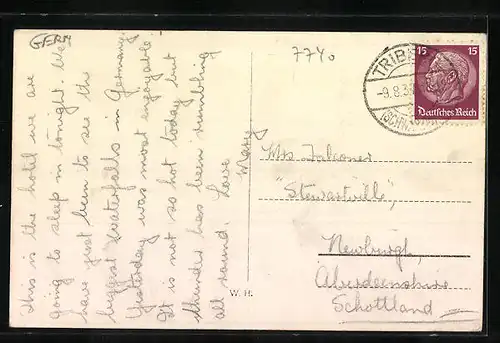 GERM
7740
This is the hotel we are
going to sleep in tonight. We
have just been to see the
biggest waterfalls in Germany.
Yesterday was most enjoyable
It is not so hot today but
thunder has been rumbling
all round. Love
Mary
TRIB
-9.8.3
(SCHW
15 15
Deutsches Reich
Mrs Falconer
"Stewartville",
Newburgh,
Aberdeenshire
Schottland
W. H.